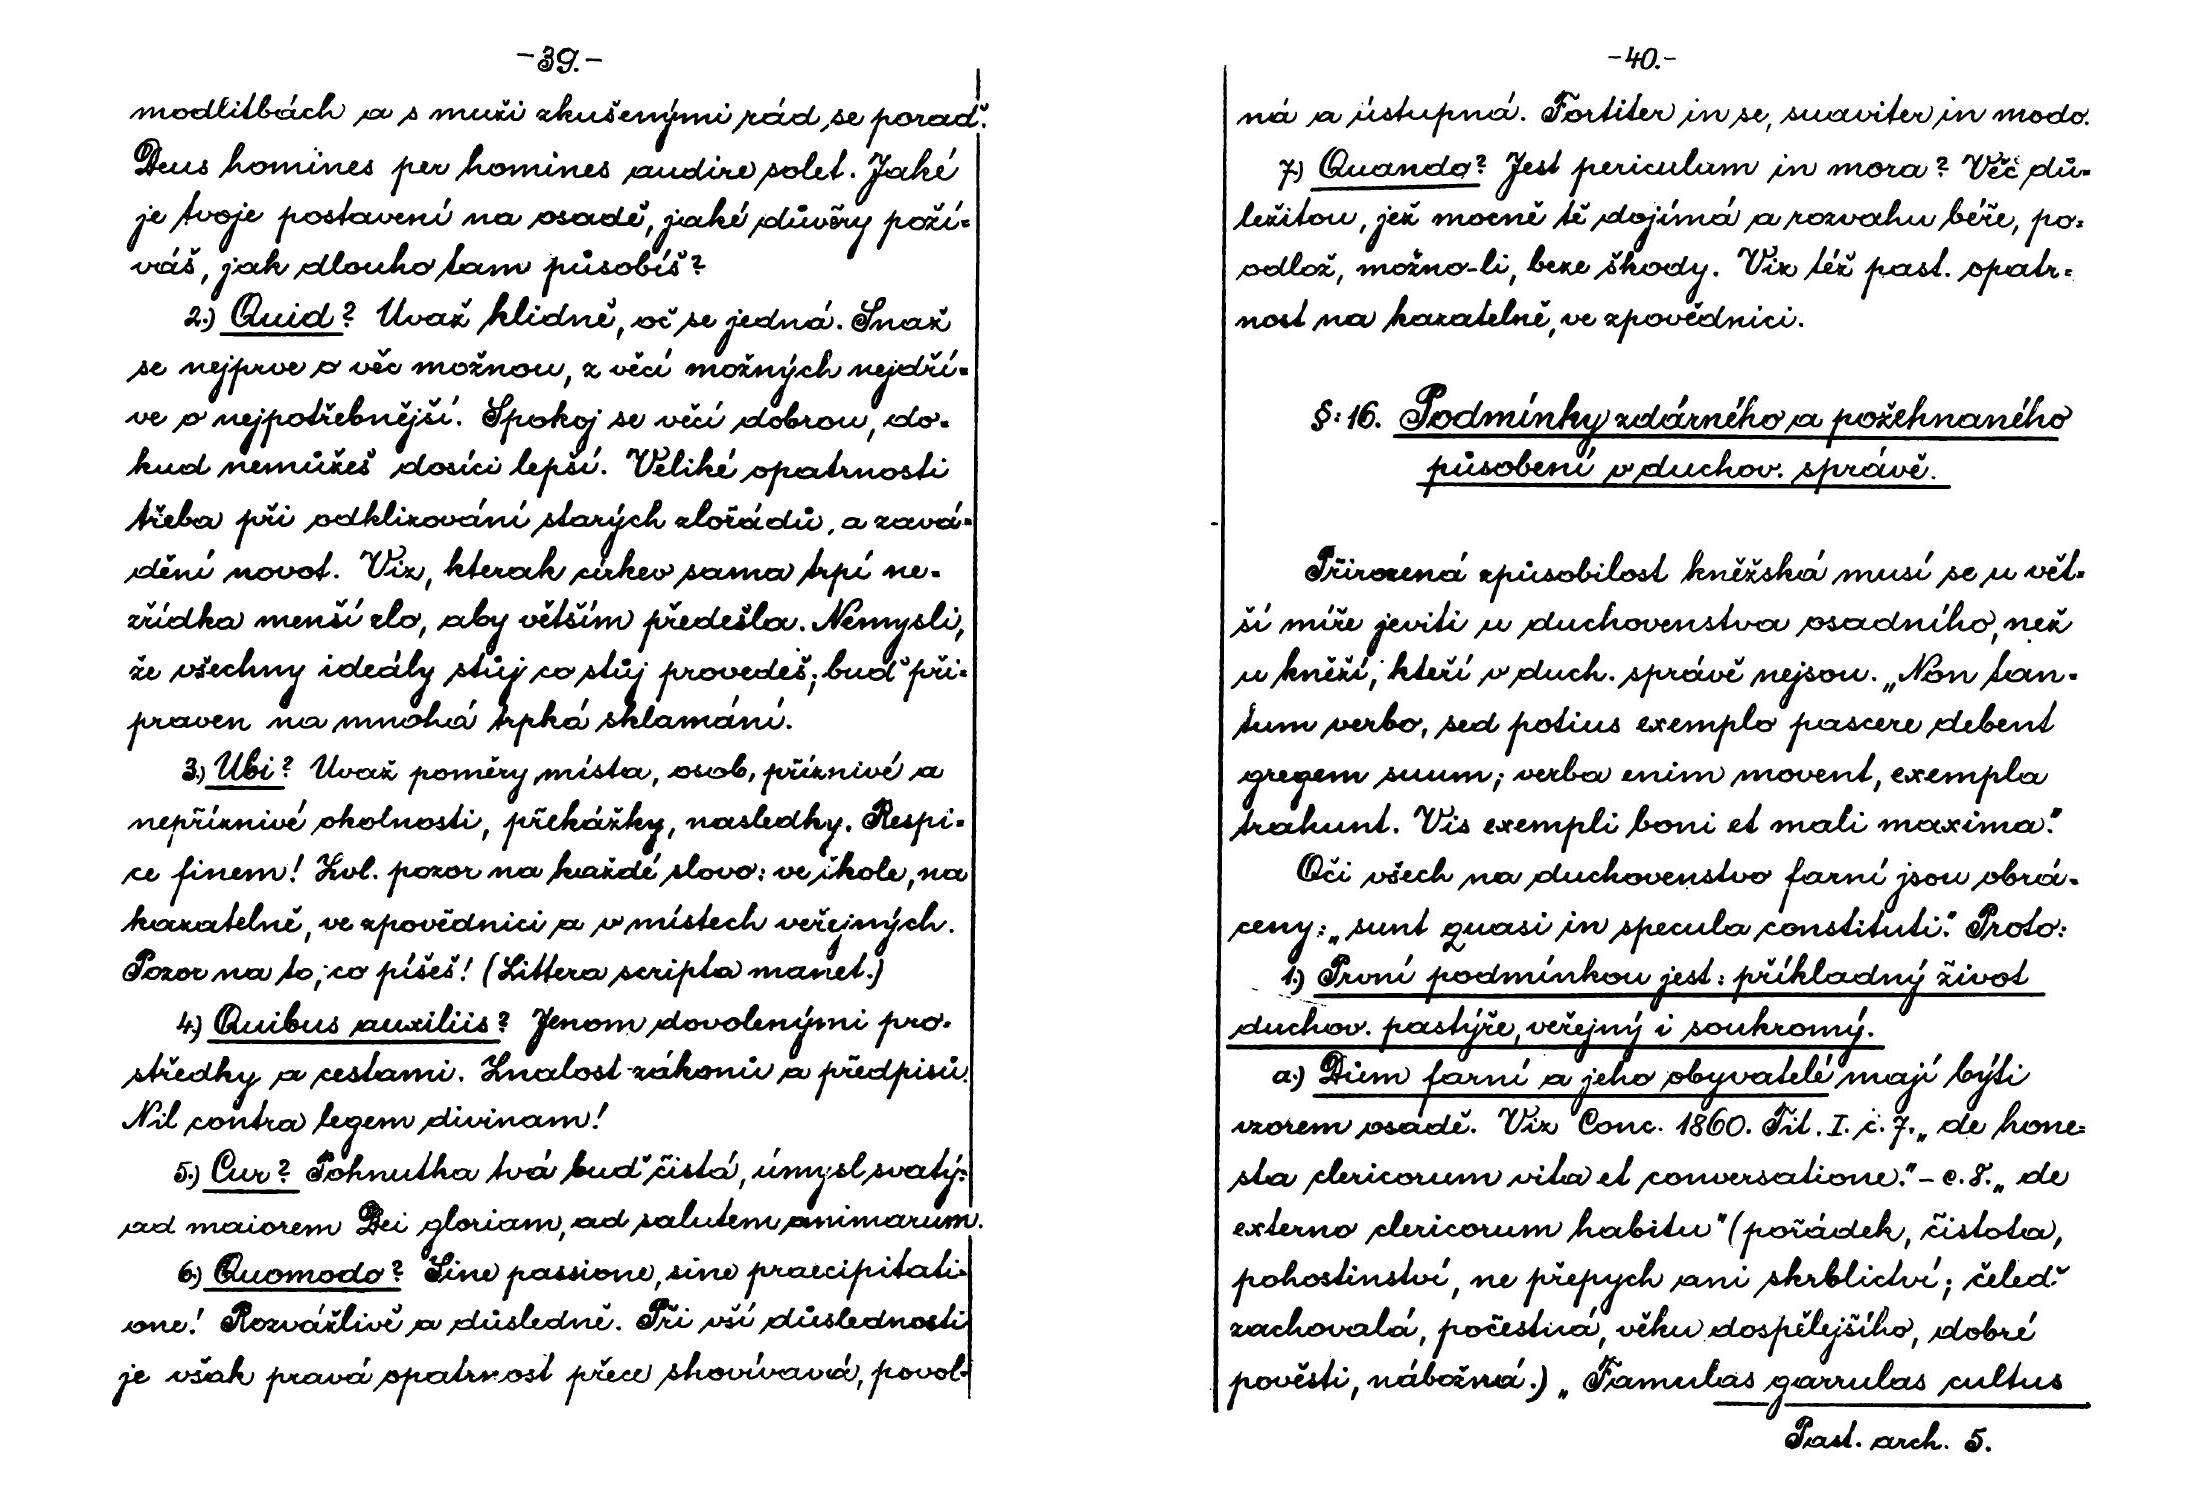 -39.-
modlitbách a s muži zkušenými rád se poraď.
Deus homines per homines audire solet. Jaké
je tvoje postavení na osadě, jaké důvěry poží-
váš, jak dlouho tam působíš?
2.) Quid? Uvaž klidně, oč se jedná. Snaž
se nejprve o věc možnou, z věcí možných nejdří-
ve o nejpotřebnější. Spokoj se věcí dobrou, do-
kud nemůžeš dosíci lepší. Veliké opatrnosti
třeba při odklizování starých zlořádů, a zavá-
dění novot. Viz, kterak církev sama trpí ne-
zřídka menší zlo, aby větším předešla. Nemysli,
že všechny ideály stůj co stůj provedeš; buď při-
praven na mnohá trpká sklamání.
3.) Ubi? Uvaž poměry místa, osob, příznivé a
nepříznivé okolnosti, překážky, nasledky. Respi-
ce finem! Zvl. pozor na každé slovo: ve škole, na
kazatelně, ve zpovědnici a v místech veřejných.
Pozor na to, co píšeš! (Littera scripta manet.)
4.) Quibus auxiliis? Jenom dovolenými pro-
středky a cestami. Znalost zákonův a předpisů.
Nil contra legem divinam!
5.) Cur? Pohnutka tvá buď čistá, úmysl svatý:
ad maiorem Dei gloriam, ad salutem animarum.
6.) Quomodo? Sine passione, sine praecipitati-
one! Rozvážlivě a důsledně. Při vší důslednosti
je však pravá opatrnost přece shovívavá, povol-
-40.-
ná a ústupná. Fortiter in se, suaviter in modo.
7.) Quando? Jest periculum in mora? Věc dů-
ležitou, jež mocně tě dojímá a rozvahu béře, po-
odlož, možno-li, beze škody. Viz též past. opatr-
nost na kazatelně, ve zpovědnici.
§: 16. Podmínky zdárného a požehnaného
působení v duchov. správě.
Přirozená způsobilost kněžská musí se u vět-
ší míře jeviti u duchovenstva osadního, než
u kněží, kteří v duch. správě nejsou. „Non tan-
tum verbo, sed potius exemplo pascere debent
gregem suum; verba enim movent, exempla
trahunt. Vis exempli boni et mali maxima."
Oči všech na duchovenstvo farní jsou obrá-
ceny: „sunt quasi in specula constituti." Proto:
1.) První podmínkou jest: příkladný život
duchov. pastýře, veřejný i soukromý.
a.) Dům farní a jeho obyvatelé mají býti
vzorem osadě. Viz Conc. 1860. Tit. I. c. 7. „de hone-
sta clericorum vita et conversatione." - c. 8. „de
externo clericorum habitu" (pořádek, čistota,
pohostinství, ne přepych ani skrblictví; čeleď
zachovalá, počestná, věku dospělejšího, dobré
pověsti, nábožná.) „Famulas garrulas cultus
Past. arch. 5.